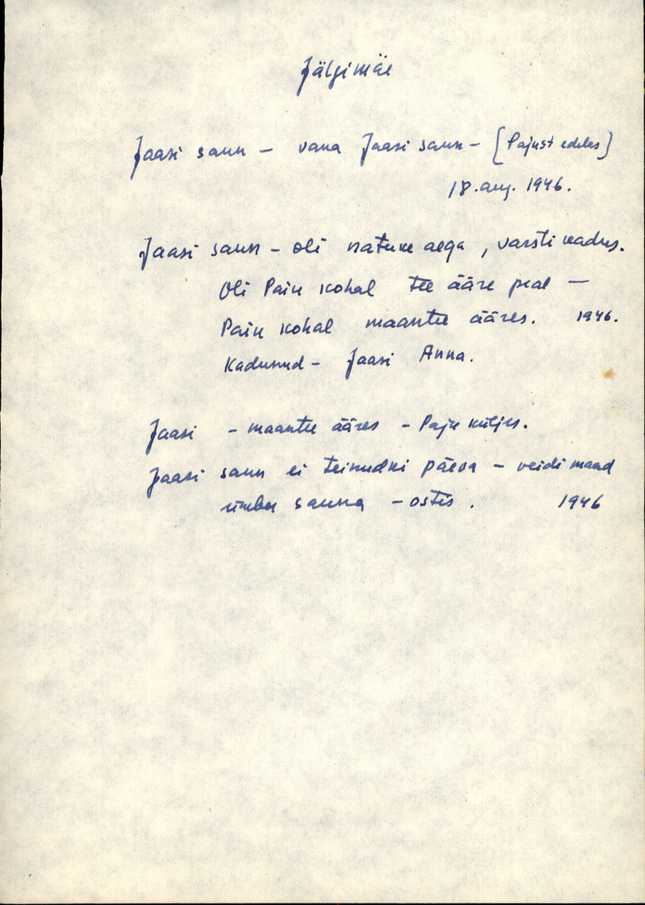 Jälgimäe
Jaasi saun – vana Jaasi saun – [Pajust edelas]
18. aug. 1946.
Jaasi saun – oli natuke aega, varsti kadus.
Oli Paiu kohal tee ääre peal –
Paiu kohal maantee ääres. 1946.
Kadunud – Jaasi Anna.
Jaasi – maantee ääres – Paju küljes.
Jaasi saun ei teinudki päeva – veidi maad
ümber sauna – ostis. 1946